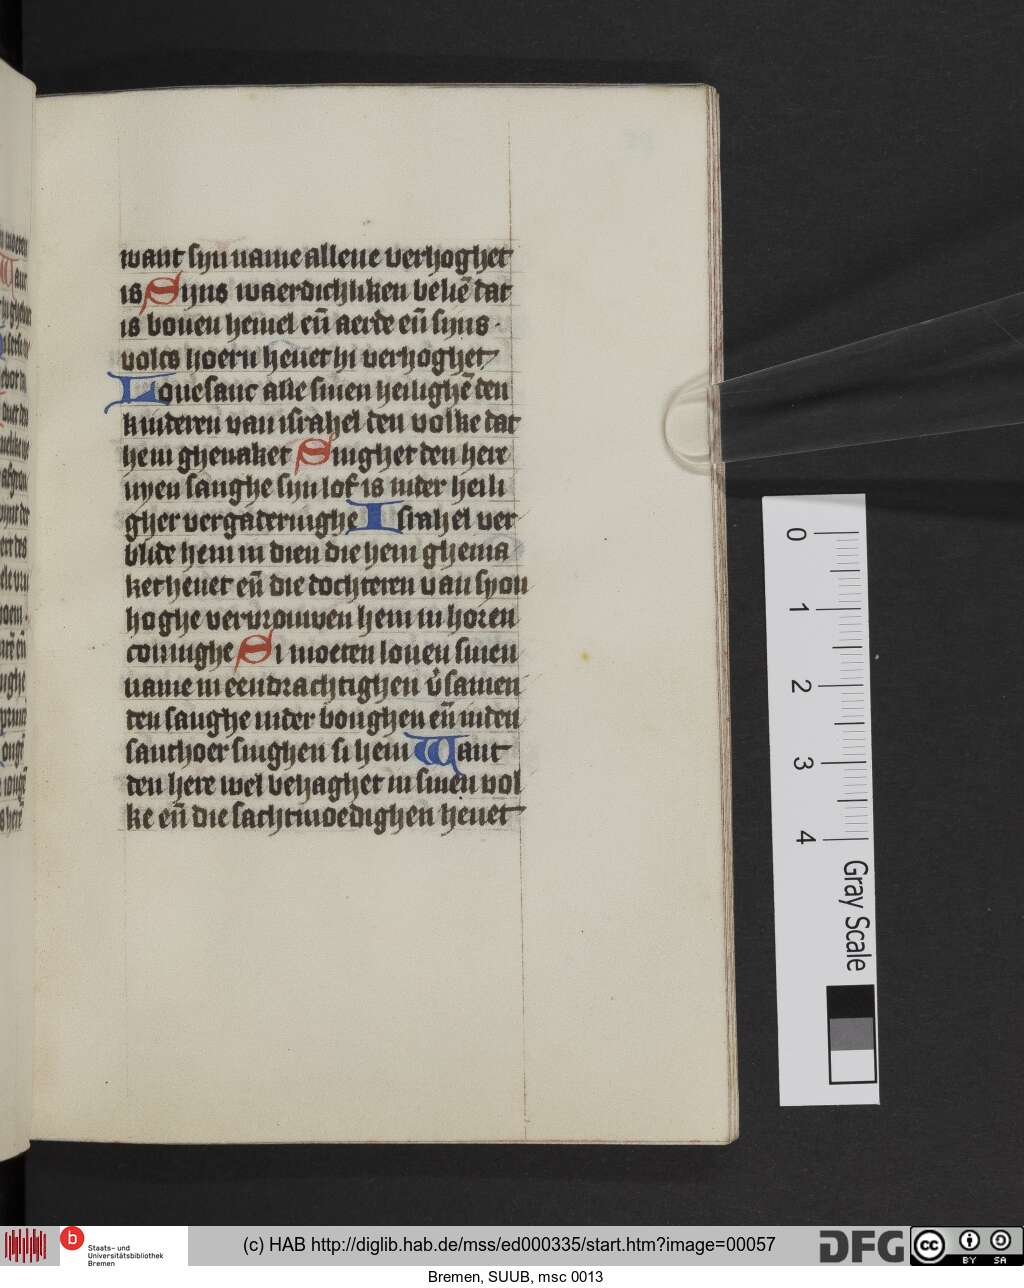 want syn name allene verhoghet
is Syns waerdichliken beliē dat
is bouen hemel eñ aerde eñ syns ·
volcs hoern heuet hi verhoghet
Louesanc alle sinen heilighē den
kinderen van israhel den volke dat
hem ghenaket Singhet den here
nyen sanghe syn lof is inder heili
gher vergaderinghe Israhel ver
blide hem in dien die hem ghema
ket heuet eñ die dochteren van syon
hoghe vervrouwen hem in horen
coninghe Si moeten louen sinen
name in eendrachtighen v̉samen
den sanghe inder bonghen eñ inden
santhoer singhen si hem Want
den here wel behaghet in sinen vol
ke eñ die sachtmoedighen heuet
0
1
2
3
4
Gray Scale
b
Staats- und
Universitätsbibliothek
Bremen
(c) HAB http://diglib.hab.de/mss/ed000335/start.htm?image=00057
DFG
cc
BY SA
Bremen, SUUB, msc 0013